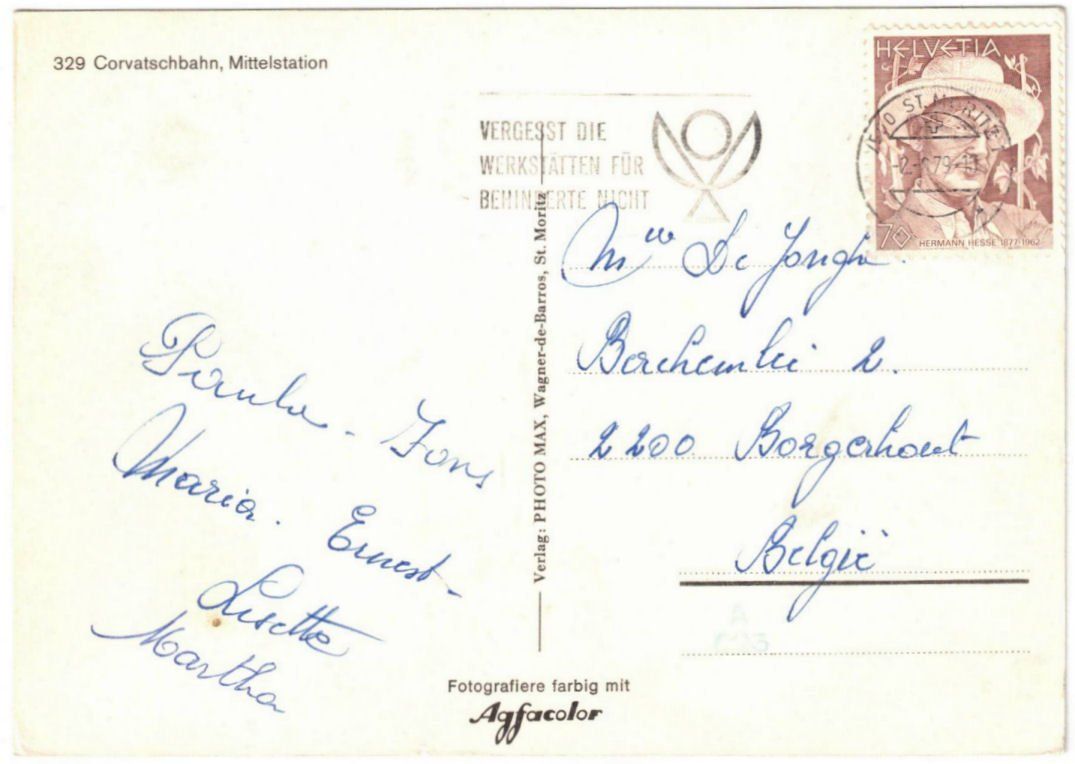 329 Corvatschbahn, Mittelstation
VERGESST DIE
WERKSTÄTTEN FÜR
BEHINDERTE NICHT
HELVETIA
ST. MORITZ 1
79
70
HERMANN HESSE 1877-1962
Verlag: PHOTO MAX, Wagner-de-Barros, St. Moritz
Paula - Fons
Maria. Ernest -
Lisette
Martha
De Jongh.
Berchemlei 2.
2200 Borgerhout
België
Fotografiere farbig mit
Agfacolor